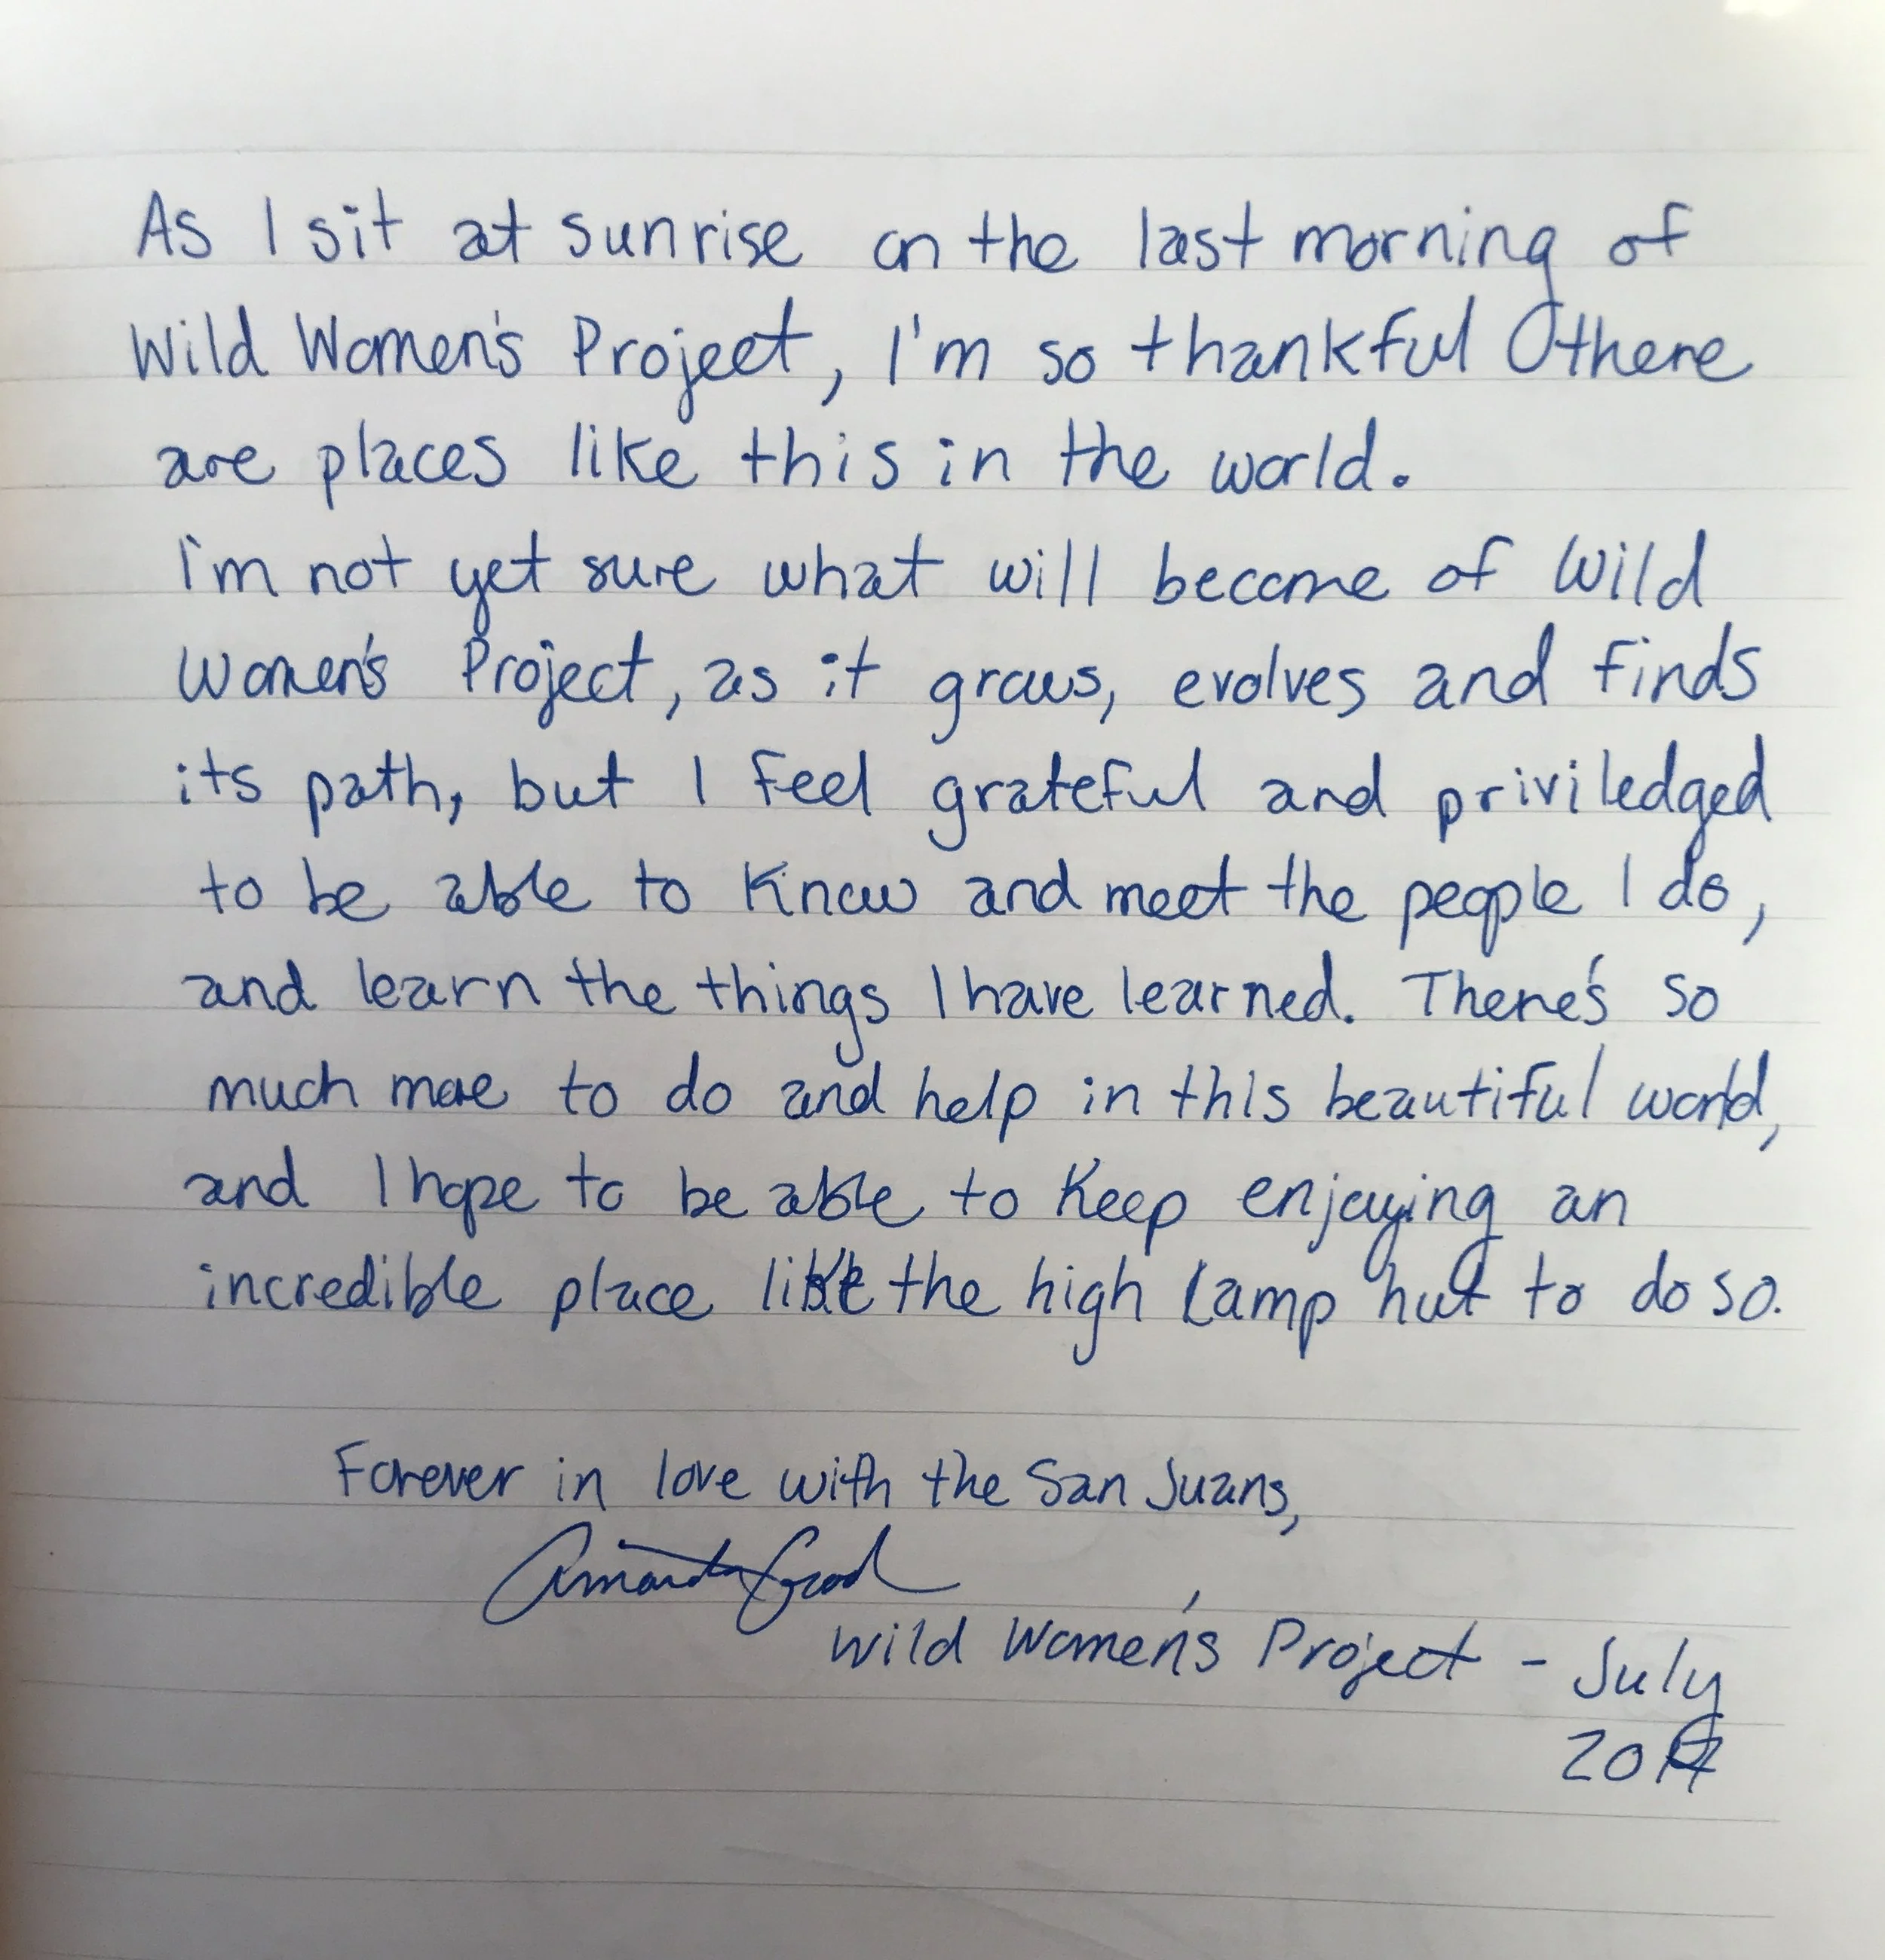 As I sit at sunrise on the last morning of
Wild Women's Project, I'm so thankful there
are places like this in the world.
I'm not yet sure what will become of Wild
Women's Project, as it grows, evolves and finds
its path, but I feel grateful and priviledged
to be able to know and meet the people I do,
and learn the things I have learned. There's so
much more to do and help in this beautiful world,
and I hope to be able to keep enjoying an
incredible place like the high camp hut to do so.
Forever in love with the San Juans,
Amanda
Wild Women's Project - July
2017